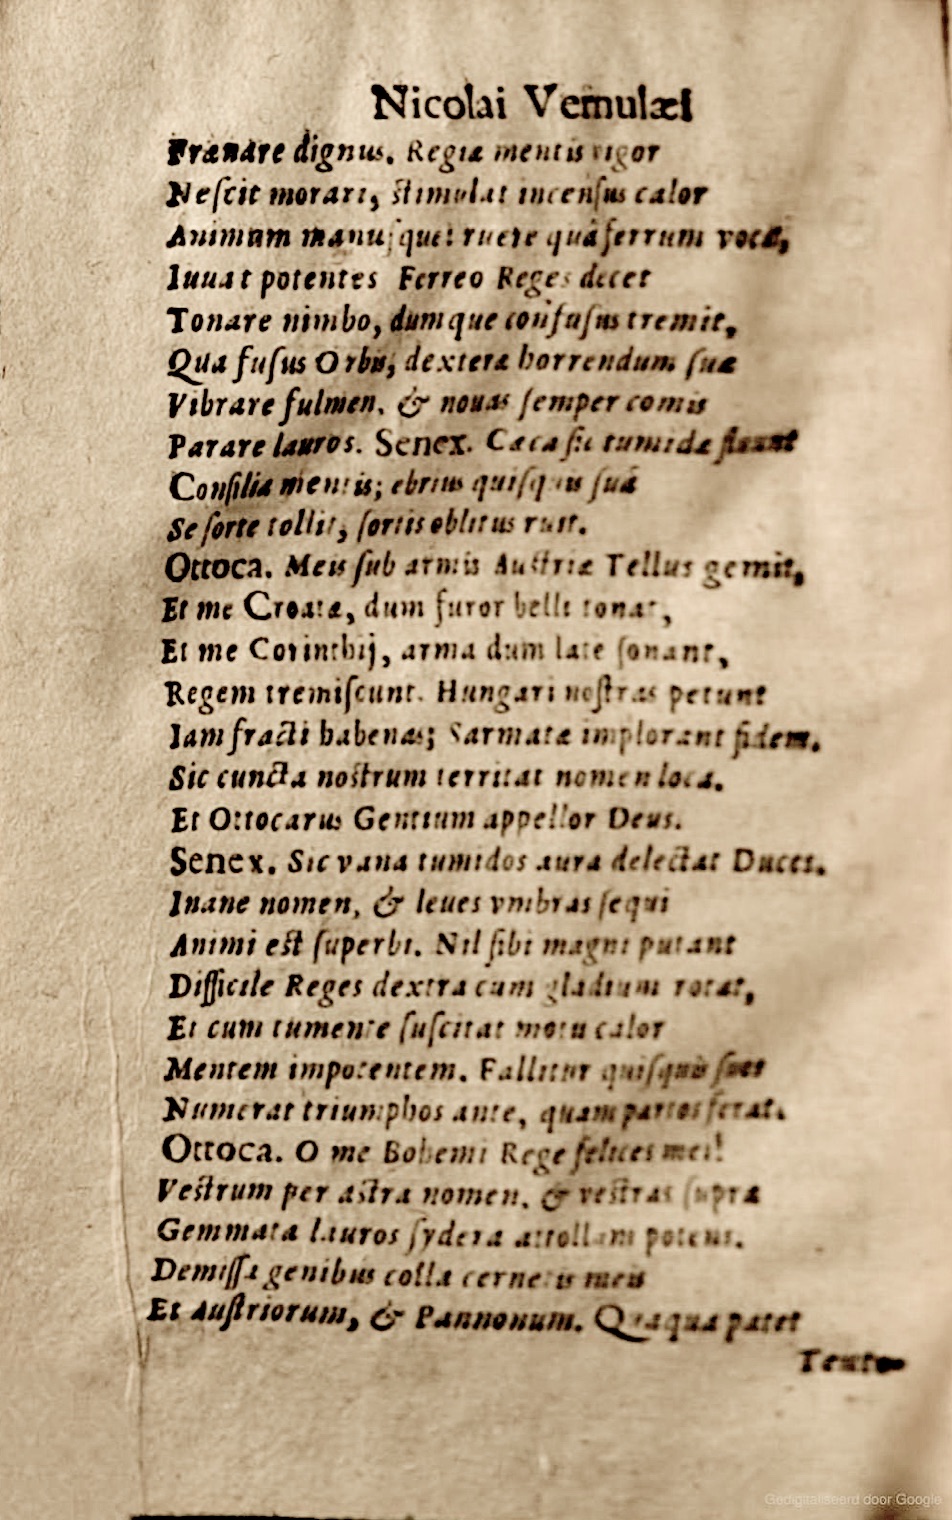 Nicolai Vernulæi
Frænare dignus. Regia mentis vigor
Nescit morari, stimulat incensus calor
Animum manusque: ruere quà ferrum vocat,
Iuuat potentes Ferreo Reges decet
Tonare nimbo, dumque confusus tremit,
Qua fusus Orbis, dextera horrendum sua
Vibrare fulmen, & nouas semper comis
Parare lauros. Senex. Cæca sic tumidæ fluunt
Consilia mentis; ebrius quisquis suâ
Se sorte tollit, sortis oblitus ruit.
Ottoca. Meis sub armis Austriæ Tellus gemit,
Et me Croatæ, dum furor belli tonat,
Et me Corinthij, arma dum late sonant,
Regem tremiscunt. Hungari nostras petunt
Iam fracti habenas; Sarmatæ implorant fidem.
Sic cuncta nostrum territat nomen loca.
Et Ottocarus Gentium appellor Deus.
Senex. Sic vana tumidos aura delectat Duces.
Inane nomen, & leues vmbras sequi
Animi est superbi. Nil sibi magni putant
Difficile Reges dextra cum gladium rotat,
Et cum tumente suscitat motu calor
Mentem impotentem. Fallitur quisquis suos
Numerat triumphos ante, quam partos ferat.
Ottoca. O me Bohemi Rege felices mei!
Vestrum per astra nomen, & vestras supra
Gemmata lauros sydera attollam potens.
Demissa genibus colla cernetis meis
Et Austriorum, & Pannonum. Quaqua patet